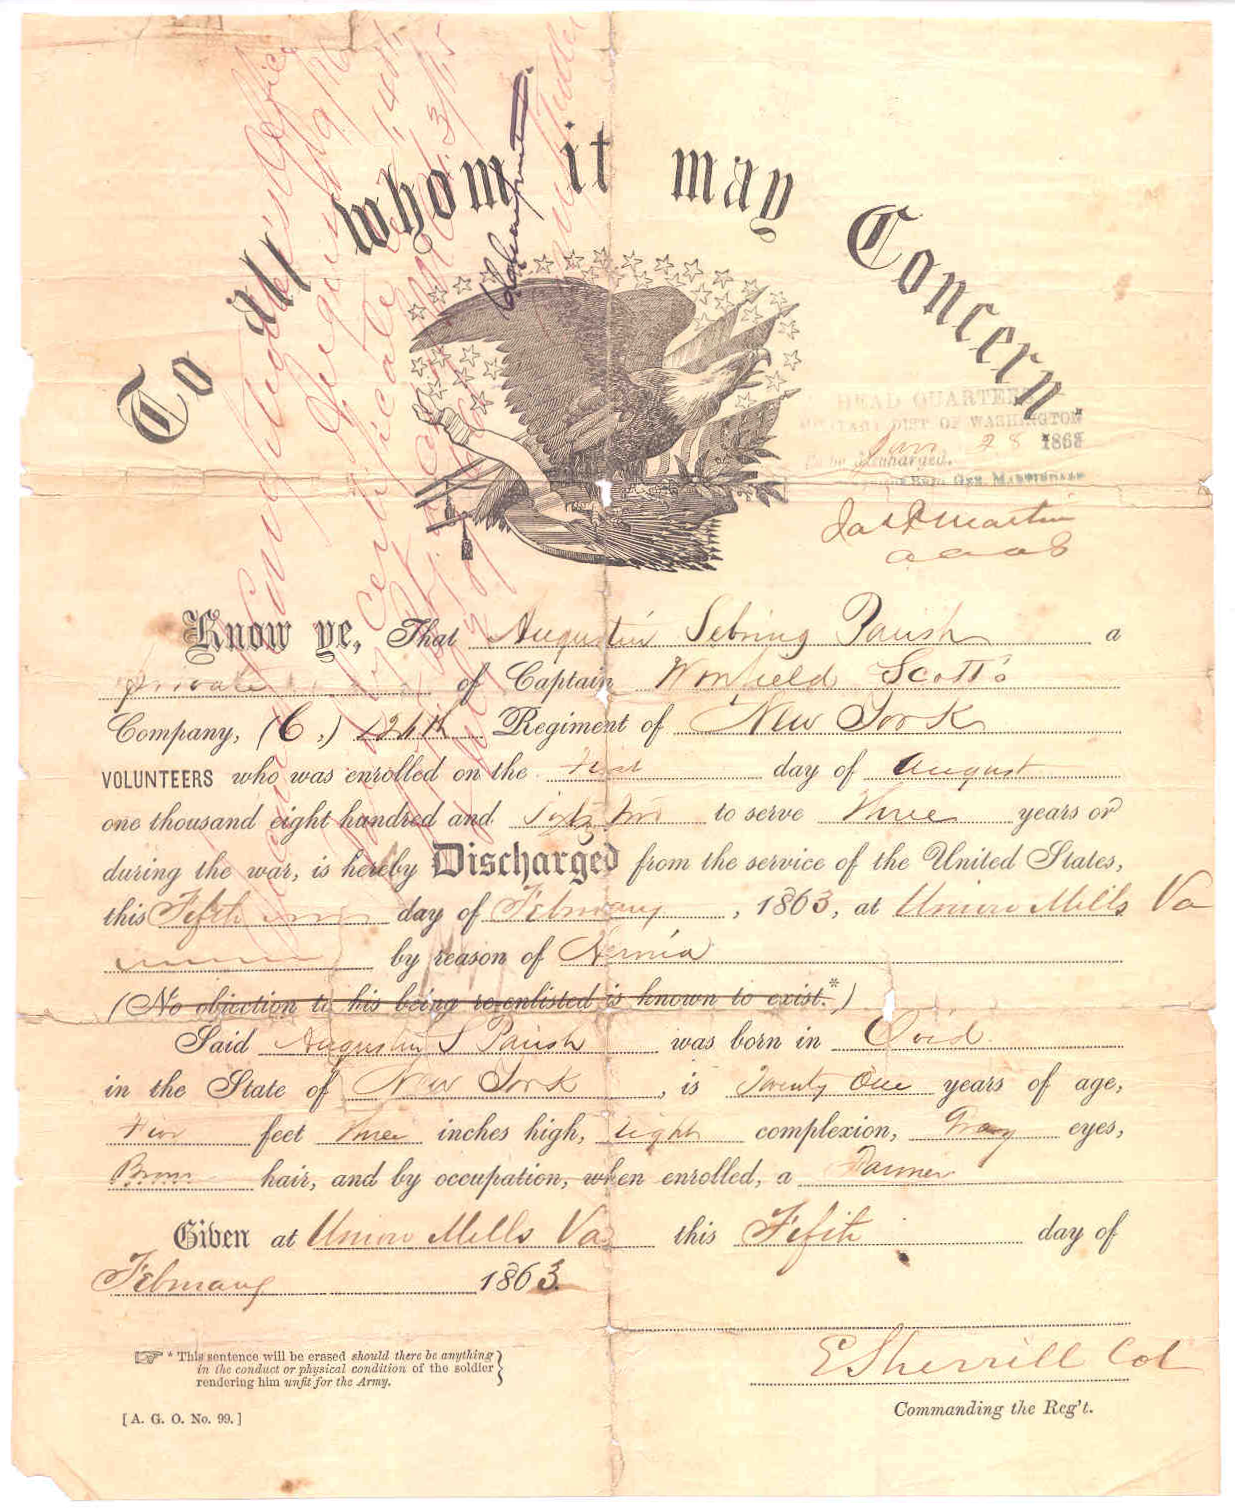 To all whom it may Concern
HEAD QUARTERS
MILITARY DIST OF WASHINGTON
Jan 28 1863
To be discharged.
Brig Gen Martindale
Know ye, That Augustin Sebring Parish a
private of Captain Winfield Scott's
Company, (C,) 126th Regiment of New York
VOLUNTEERS who was enrolled on the First day of August
one thousand eight hundred and Sixty two to serve Three years or
during the war, is hereby Discharged from the service of the United States,
this Fifth day of February, 1863, at Union Mills Va
by reason of Hernia
(No objection to his being re-enlisted is known to exist.*)
Said Augustin S Parish was born in Ovid
in the State of New York, is Twenty One years of age,
Five feet Three inches high, Light complexion, Gray eyes,
Brown hair, and by occupation, when enrolled, a Farmer
Given at Union Mills Va this Fifth day of
February 1863.
E Sherrill Col
Commanding the Reg't.
* This sentence will be erased should there be anything
in the conduct or physical condition of the soldier
rendering him unfit for the Army.
[A. G. O. No. 99.]